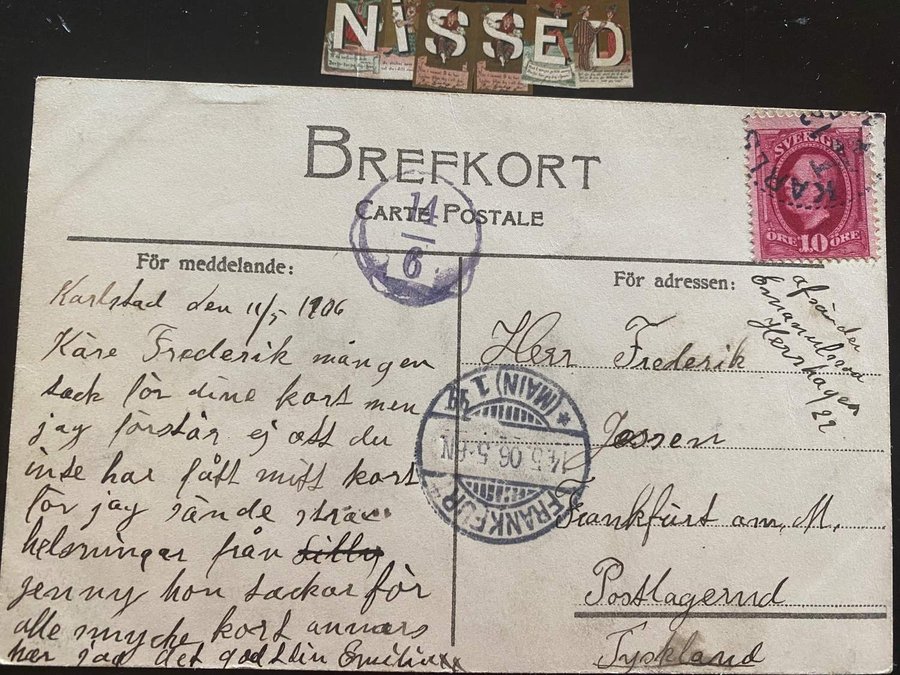 NiSSED
BREFKORT
CARTE POSTALE
14
6
SVERIGE
ÖRE 10 ÖRE
För meddelande:
För adressen:
Karlstad den 11/5 1906
Käre Frederik mången
tack för dine kort men
jag förstår ej att du
inte har fått mitt kort
för jag sände strax
helsningar från Lilly
jenny hon tackar för
alle smycke kort annars
har jag det godt din Emilia xx
afsänder
Emanuelsson
Herrhagen
22
Herr Frederik
Jessen
Frankfurt am. M.
Postlagernd
Tyskland
FRANKFURT (MAIN) 1
14.5.06.5-6N